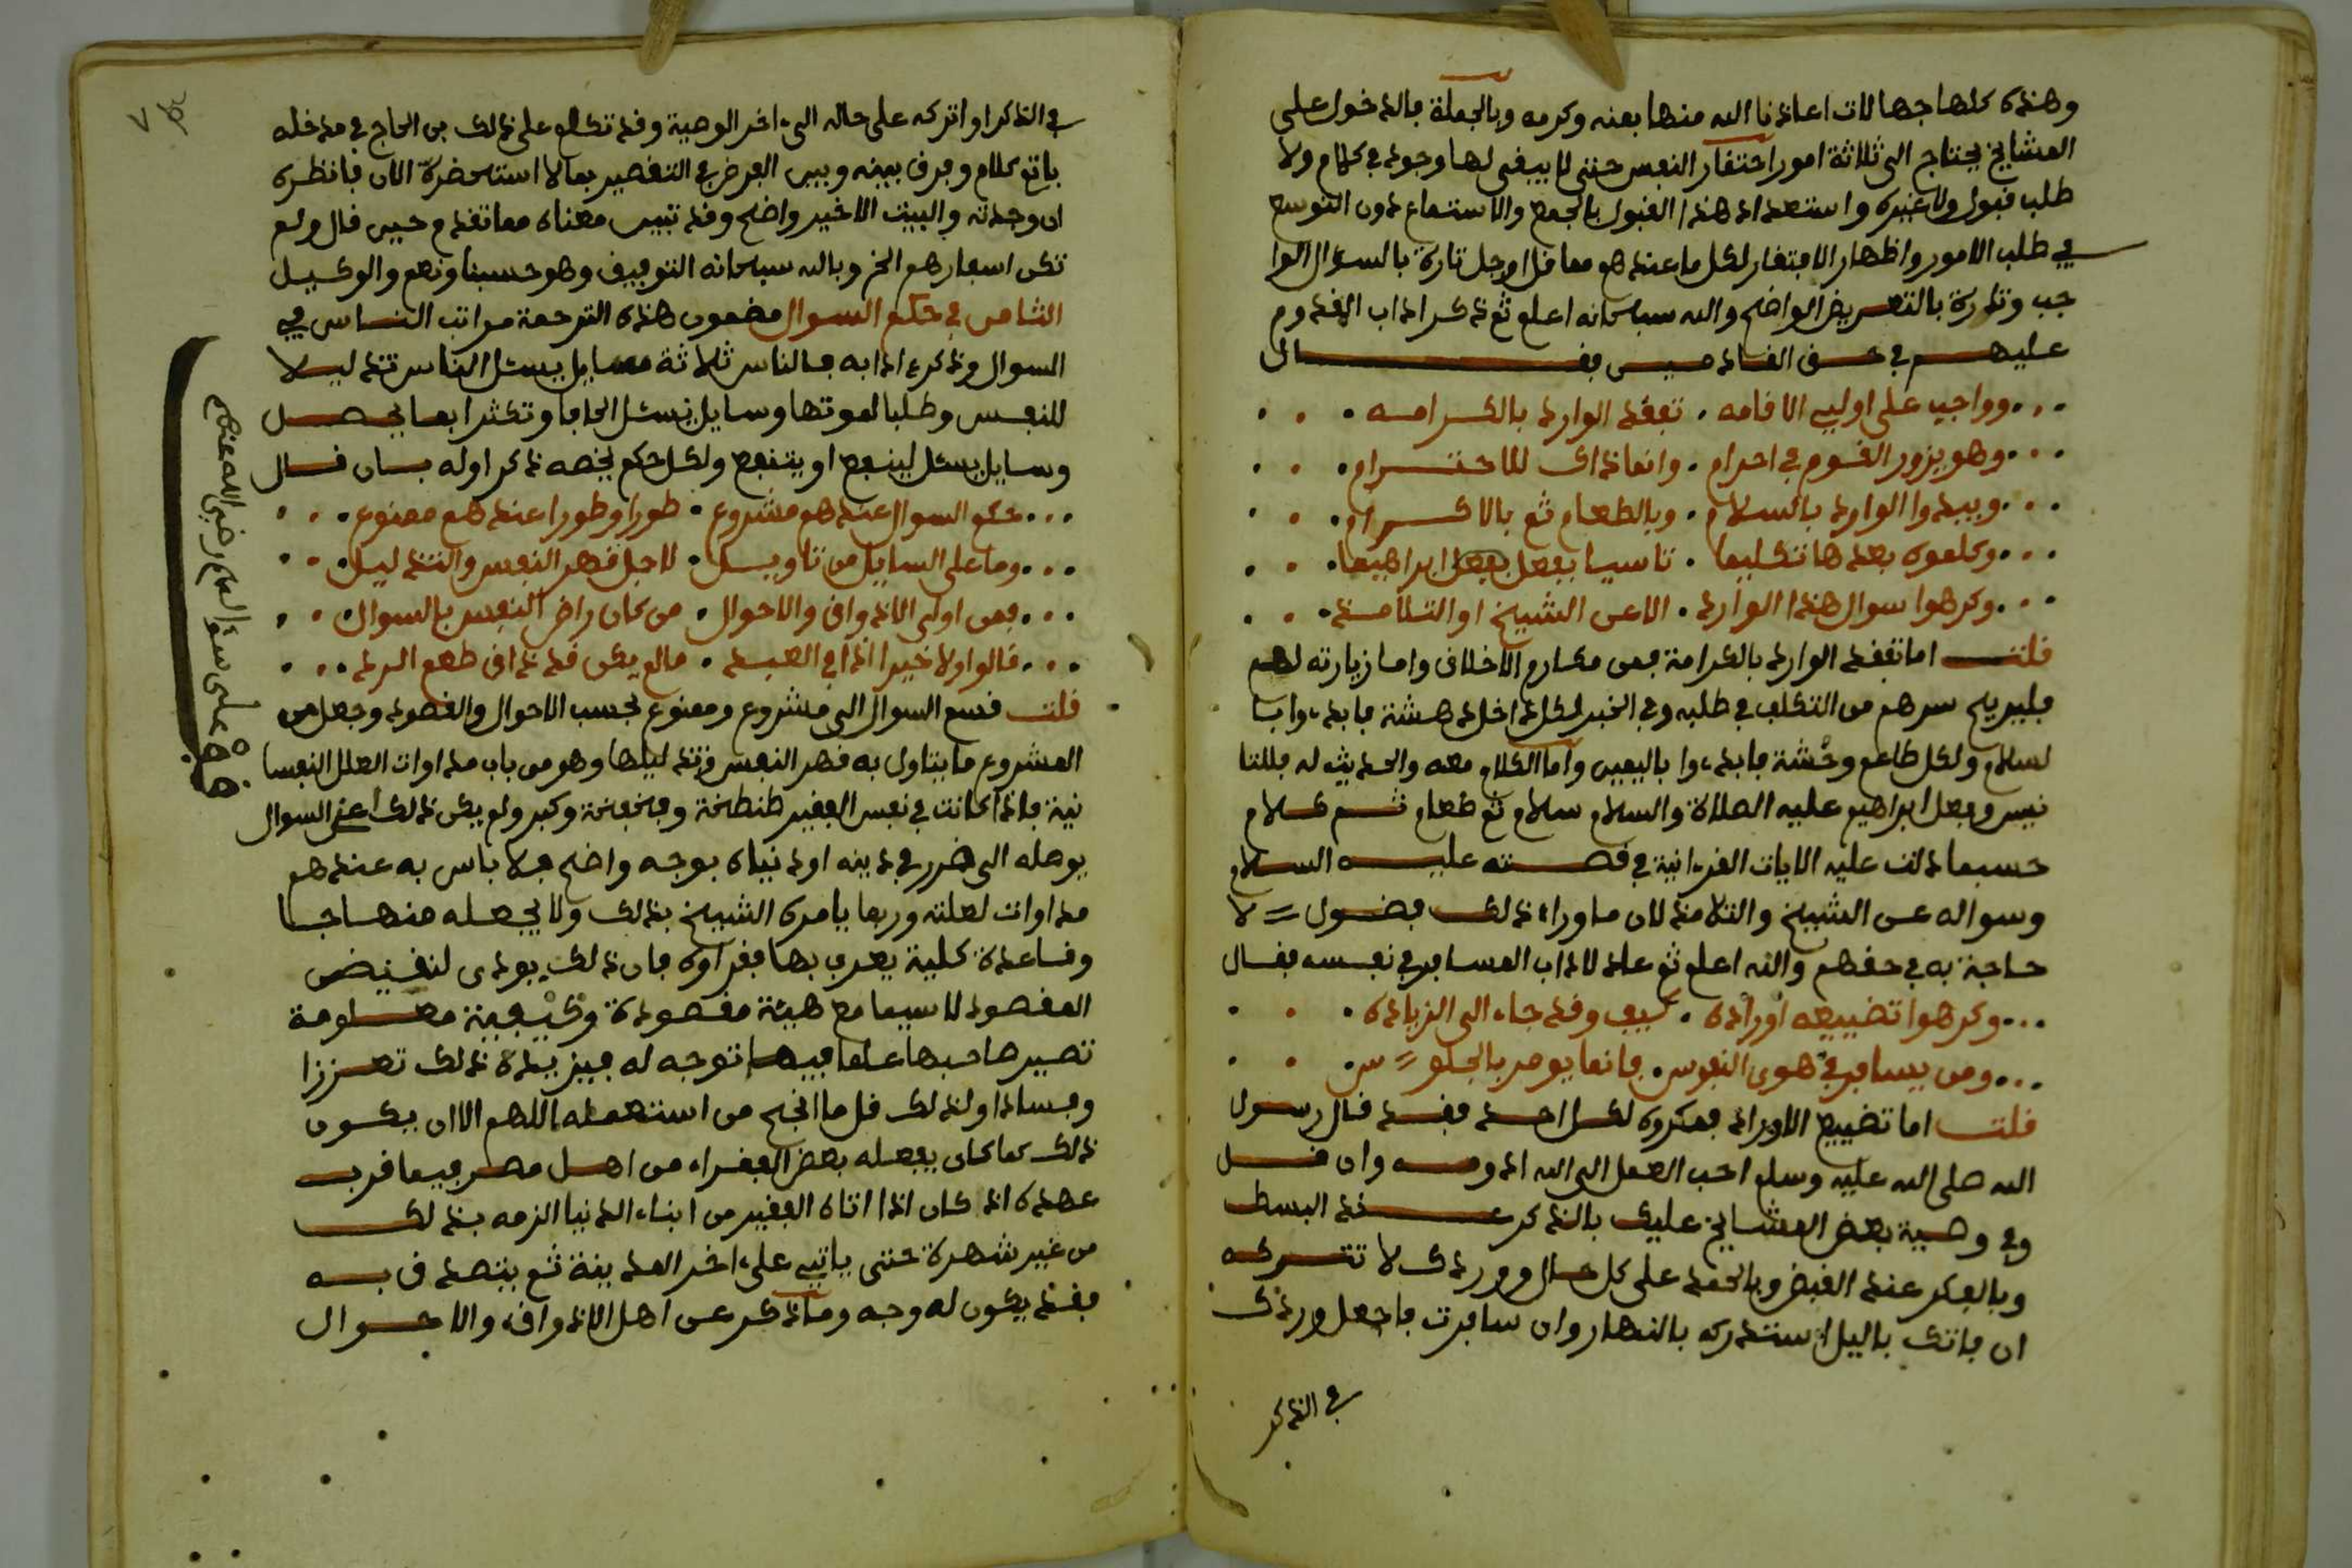 وهذه كلها جهالات اعاذنا الله منها بمنه وكرمه وبالجملة فالدخول على
المشايخ يحتاج الى ثلاثة امور احتقار النفس حتى لا يبقى لها وجود في كلام ولا
طلب قبول ولا غيره واستعداد هذا القبول بالجمع والاستماع دون التوسع
في طلب الامور واظهار الافتقار لكل ما عندهم مما قل او جل تارة بالسؤال الوا
جب وتارة بالتعريض الواضح والله سبحانه اعلم ثم ذكر اداب القدوم
عليهم في حق القادمين فقال
وواجب على اولي الاقامه . تفقد الوارد بالكرامه
وهو يزور القوم في احرام . وانما ذاك للاحترام
ويبدوا الوارد بالسلام . وبالطعام ثم بالاكرام
وكلموه بعدها تكليما . تاسيا بفعل ابراهيما
وكرهوا سوال هذا الوارد . الا عن الشيخ او التلامذ
قلت اما تفقد الوارد بالكرامة فمن مكارم الاخلاق واما زيارته لهم
فليريح سرهم من التكلف في طلبه وفي الخبر لكل داخل دهشة فابدءوا با
لسلام ولكل طاعم وحشة فابدءوا باليمين واما الكلام معه والحديث له فللتا
نيس وفعل ابراهيم عليه الصلاة والسلام سلام ثم طعام ثم كلام
حسبما دلت عليه الايات القرءانية في قصته عليه السلام
وسواله عن الشيخ والتلامذ لان ما وراء ذلك فضول لا
حاجة به في حقهم والله اعلم ثم عاد لاداب المسافر في نفسه فقال
وكرهوا تضييعه اوراده . كيف وقد جاء الى الزياده
ومن يسافر في هوى النفوس . فانما يومر بالجلوس
قلت اما تضييع الاوراد فمكروه لكل احد فقد قال رسول
الله صلى الله عليه وسلم احب العمل الى الله ادومه وان قل
وفي وصية بعض المشايخ عليك بالذكر عند البسط
وبالفكر عند القبض وبالحمد على كل حال ووردك لا تتركه
ان فاتك باليل استدركه بالنهار وان سافرت فاجعل وردك
في الذكر
في الذكر او اتركه على حاله الىء اخر الوصية وقد تكلم على ذلك بن الحاج في مدخله
باتم كلام وفرق بينه وبين الفرض في التقصير بما لا استحضره الان فانظره
ان وجدته والبيت الاخير واضح وقد تبين معناه مما تقدم حين قال ولم
تكن اسفارهم الخ وبالله سبحانه التوفيق وهو حسبنا ونعم والوكيل
الثامن في حكم السوال مضمون هذه الترجمة مراتب الناس في
السوال وذكرءادابه فالناس ثلاثة مسايل يسئل الناس تذليلا
للنفس وطلبا لموتها وسايل يسئل الحافا وتكثرا بما يحصل
وسايل يسئل لينفع او ينتفع ولكل حكم يخصه ذكر اوله بان قال
حكم السوال عندهم مشروع . طورا وطورا عندهم ممنوع
وما على السايل من تاويل . لاجل قهر النفس والتذليل
فمن اولي الاذواق والاحوال . من كان راض النفس بالسوال
قالوا ولا خير اذا في العبد . مالم يكن قد ذاق طعم الرد
قلت قسم السوال الى مشروع وممنوع بحسب الاحوال والقصود وجعل من
المشروع ما يتاول به قهر النفس وتذليلها وهو من باب مداوات العلل النفسا
نية فاذا كانت في نفس الفقير طنطخة وفخفخة وكبر ولم يكن ذلك اعنى السوال
يوصله الى ضرر في دينه او دنياه بوجه واضح فلا باس به عندهم
مداوات لعلته وربما يامره الشيخ بذلك ولا يجعله منهاجا
وقاعدة كلية يعرف بها فقراوه فان ذلك يودى لنقيض
المقصود لا سيما مع هيئة مقصودة وكيفية معلومة
تصير صاحبها علما فيها توجه له فيزيده ذلك تعززا
وفسادا ولذلك قل ما انجح من استعمله اللهم الا ان يكون
ذلك كما كان يفعله بعض الفقراء من اهل مصر فيما قرب
عهده اذ كان اذا اتاه الفقير من ابناء الدنيا الزمه بذلك
من غير شهرة حتى ياتي علىء اخر المدينة ثم يتصدق به
فقد يكون له وجه وما ذكر عن اهل الاذواق والاحوال
قف على سؤالهم رضي الله عنهم
٧